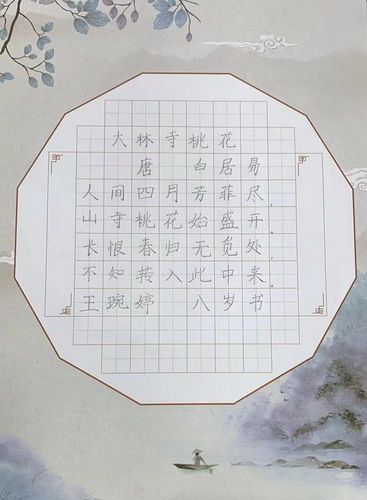 大林寺桃花
唐 白居易
人间四月芳菲尽，
山寺桃花始盛开。
长恨春归无觅处，
不知转入此中来。
王琬婷 八岁书